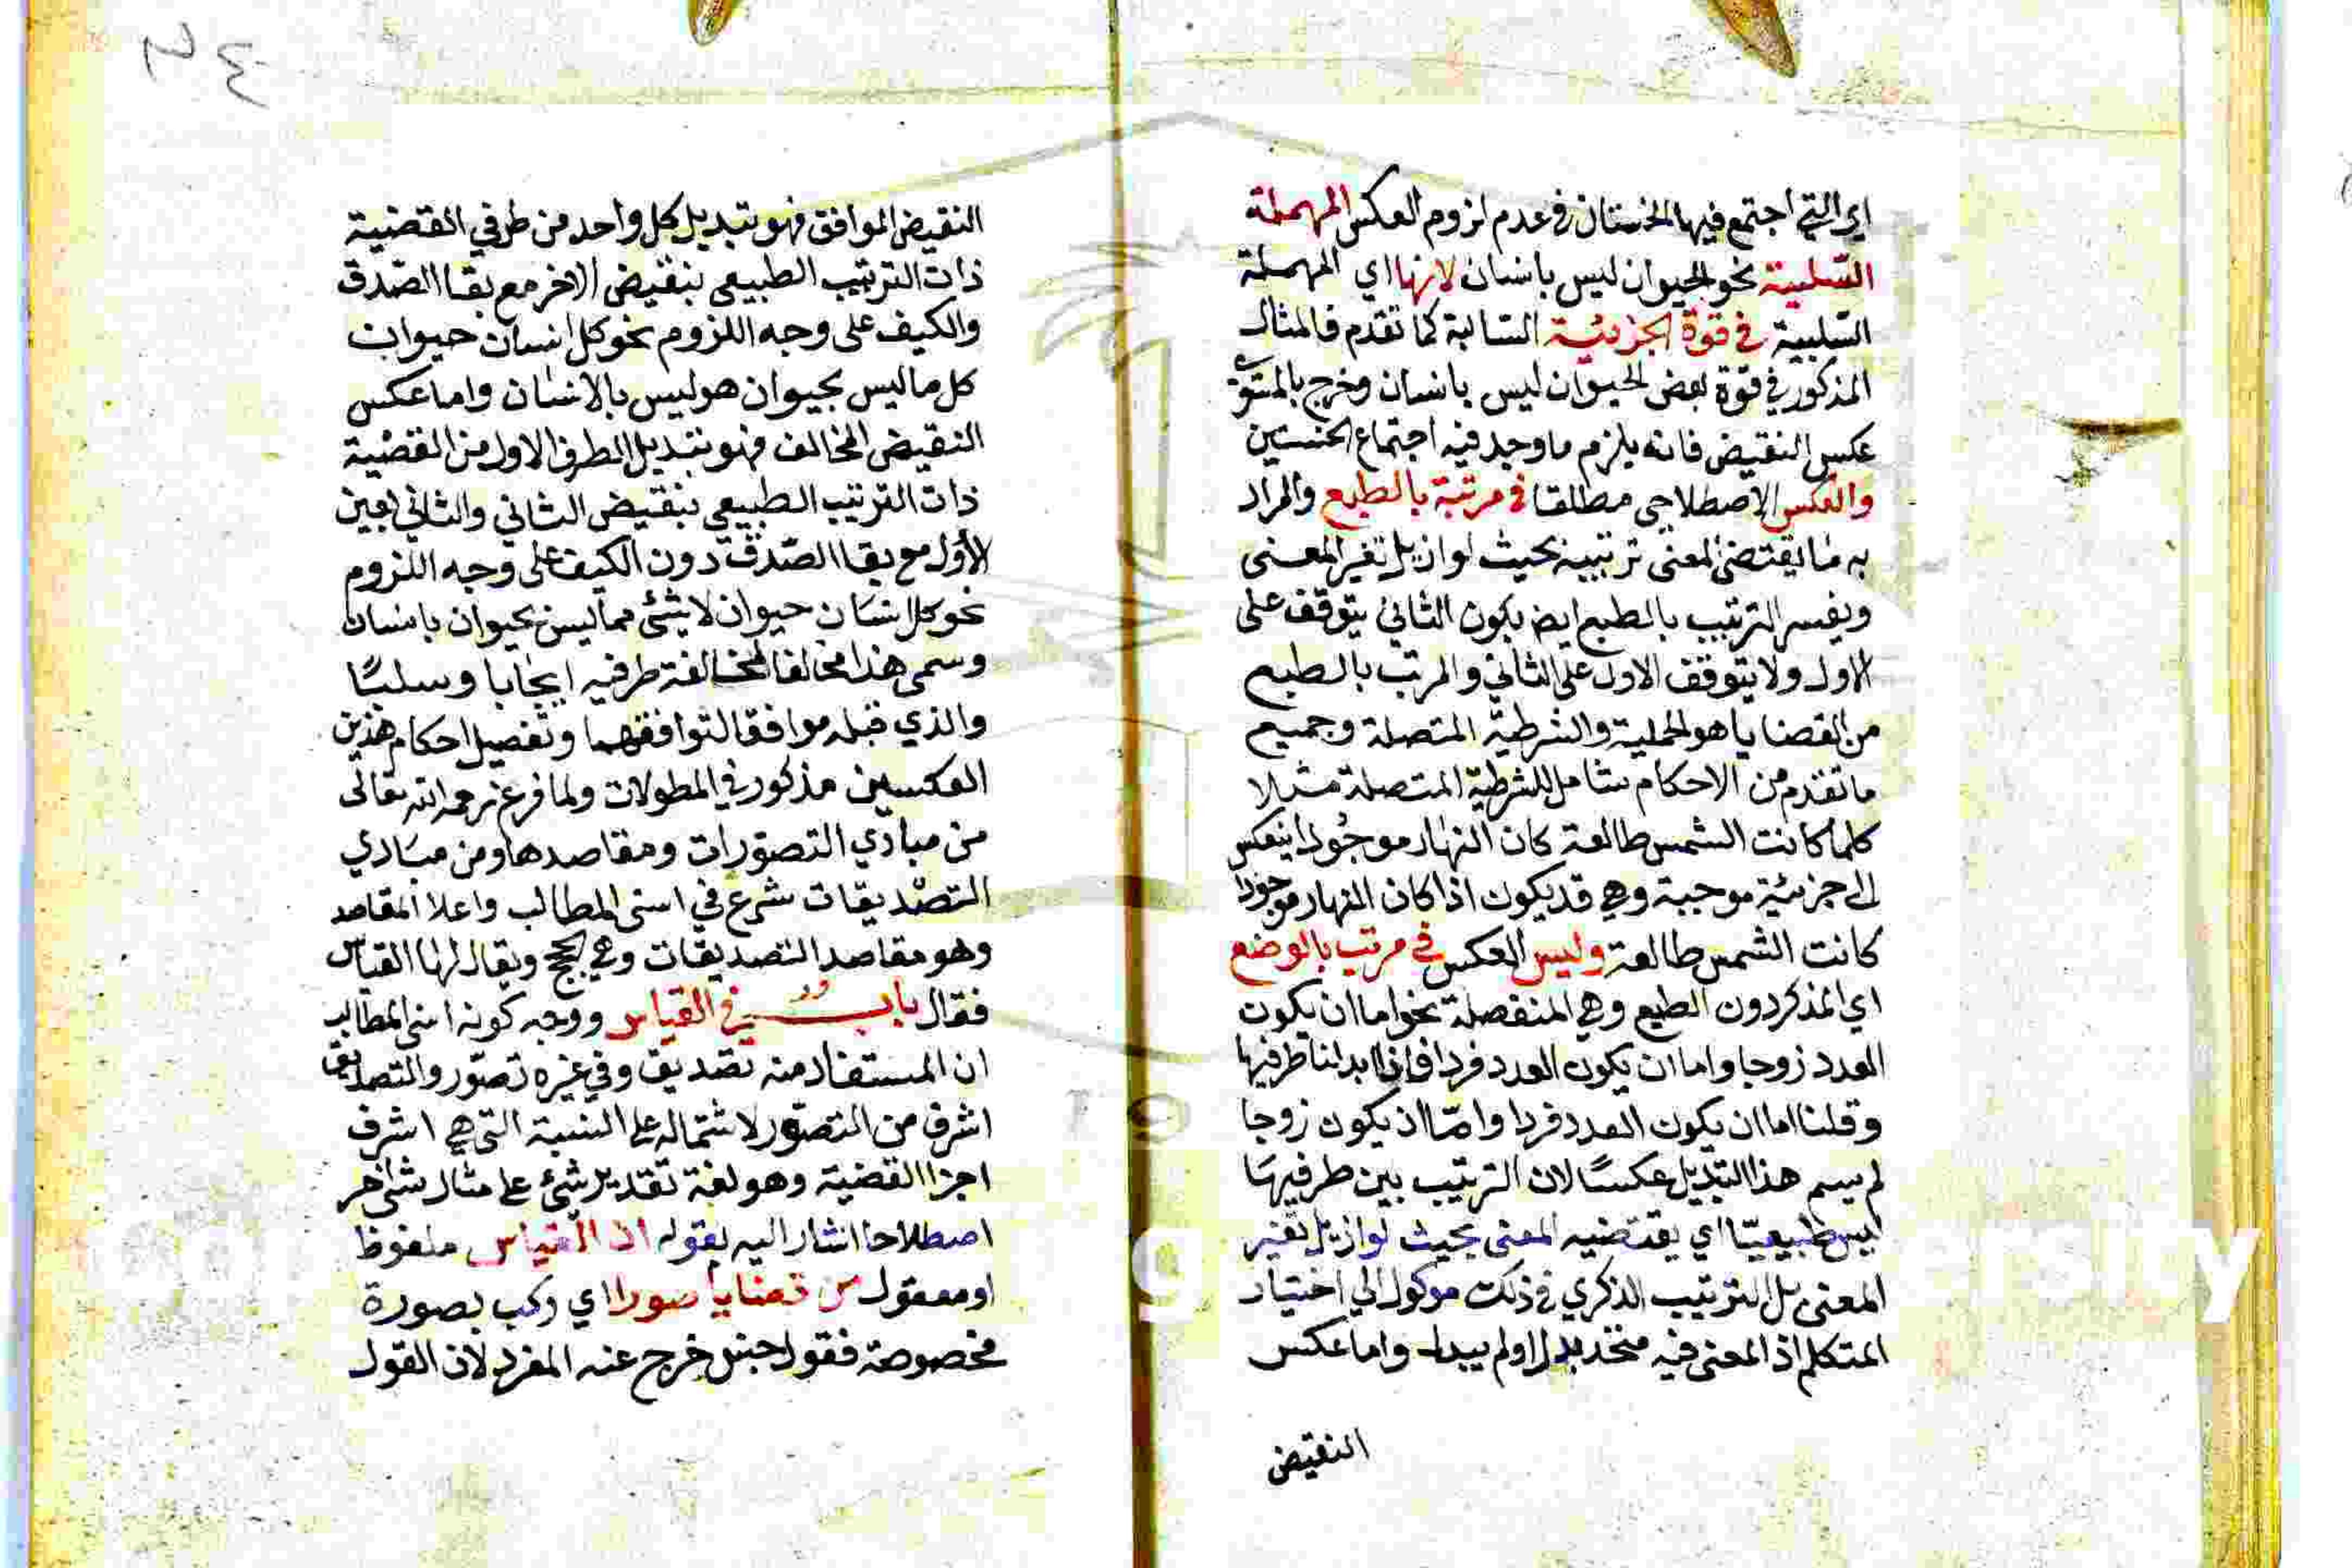 اي التي اجتمع فيها الخستان في عدم لزوم العكس المهملة
السلبية نحو الحيوان ليس بانسان لانها اي المهملة
السلبية في قوة الجزئية السالبة كما تقدم فالمثال
المذكور في قوة بعض الحيوان ليس بانسان وخرج بالمستوي
عكس النقيض فانه يلزم ما وجد فيه اجتماع الخستين
والعكس الاصطلاحي مطلقا في مرتبة بالطبع والمراد
به ما يقتضي المعنى ترتيبه بحيث لو ازيل تغير المعنى
ويفسر الترتيب بالطبع ايض بكون الثاني يتوقف على
الاول ولا يتوقف الاول على الثاني والمرتب بالطبع
من القضايا هو الحملية والشرطية المتصلة وجميع
ما تقدم من الاحكام شامل للشرطية المتصلة مثلا
كلما كانت الشمس طالعة كان النهار موجودا ينعكس
الى جزئية موجبة وهي قد يكون اذا كان النهار موجودا
كانت الشمس طالعة وليس العكس في مرتب بالوضع
اي الذكر دون الطبع وهي المنفصلة نحو اما ان يكون
العدد زوجا واما ان يكون العدد فردا فاذا ابدلنا طرفيها
وقلنا اما ان يكون العدد فردا واما ان يكون زوجا
لم يسم هذا التبديل عكسا لان الترتيب بين طرفيها
ليس طبيعيا اي يقتضيه المعنى بحيث لو ازيل تغير
المعنى بل الترتيب الذكري في ذلك موكول الي اختيار
المتكلم اذ المعنى فيه متحد بدل او لم يبدل واما عكس
النقيض
النقيض الموافق فهو تبديل كل واحد من طرفي القضية
ذات الترتيب الطبيعي بنقيض الاخر مع بقا الصدق
والكيف على وجه اللزوم نحو كل انسان حيوان
كل ما ليس بحيوان هو ليس بالانسان واما عكس
النقيض المخالف فهو تبديل الطرف الاول من القضية
ذات الترتيب الطبيعي بنقيض الثاني والثاني بعين
الأول مع بقا الصدق دون الكيف على وجه اللزوم
نحو كل انسان حيوان لا شئ مما ليس بحيوان بانسان
وسمى هذا مخالفا لمخالفة طرفيه ايجابا وسلبا
والذي قبله موافقا لتوافقهما وتفصيل احكام هذين
العكسين مذكور في المطولات ولما فرغ رحمه الله تعالى
من مبادي التصورات ومقاصدها ومن مبادي
التصديقات شرع في اسنى المطالب واعلا المقاصد
وهو مقاصد التصديقات وهي الحجج ويقال لها القياس
فقال باب في القياس ووجه كونه اسنى المطالب
ان المستفاد منه تصديق وفي غيره تصور والتصديق
اشرف من التصور لاشتماله على النسبة التي هي اشرف
اجزا القضية وهو لغة تقدير شئ على مثال شئ اخر
اصطلاحا اشار اليه بقوله ان القياس ملفوظ
او معقول من قضايا صورا اي ركب بصورة
مخصوصة فقول جنس خرج عنه المفرد لان القول
٣٤